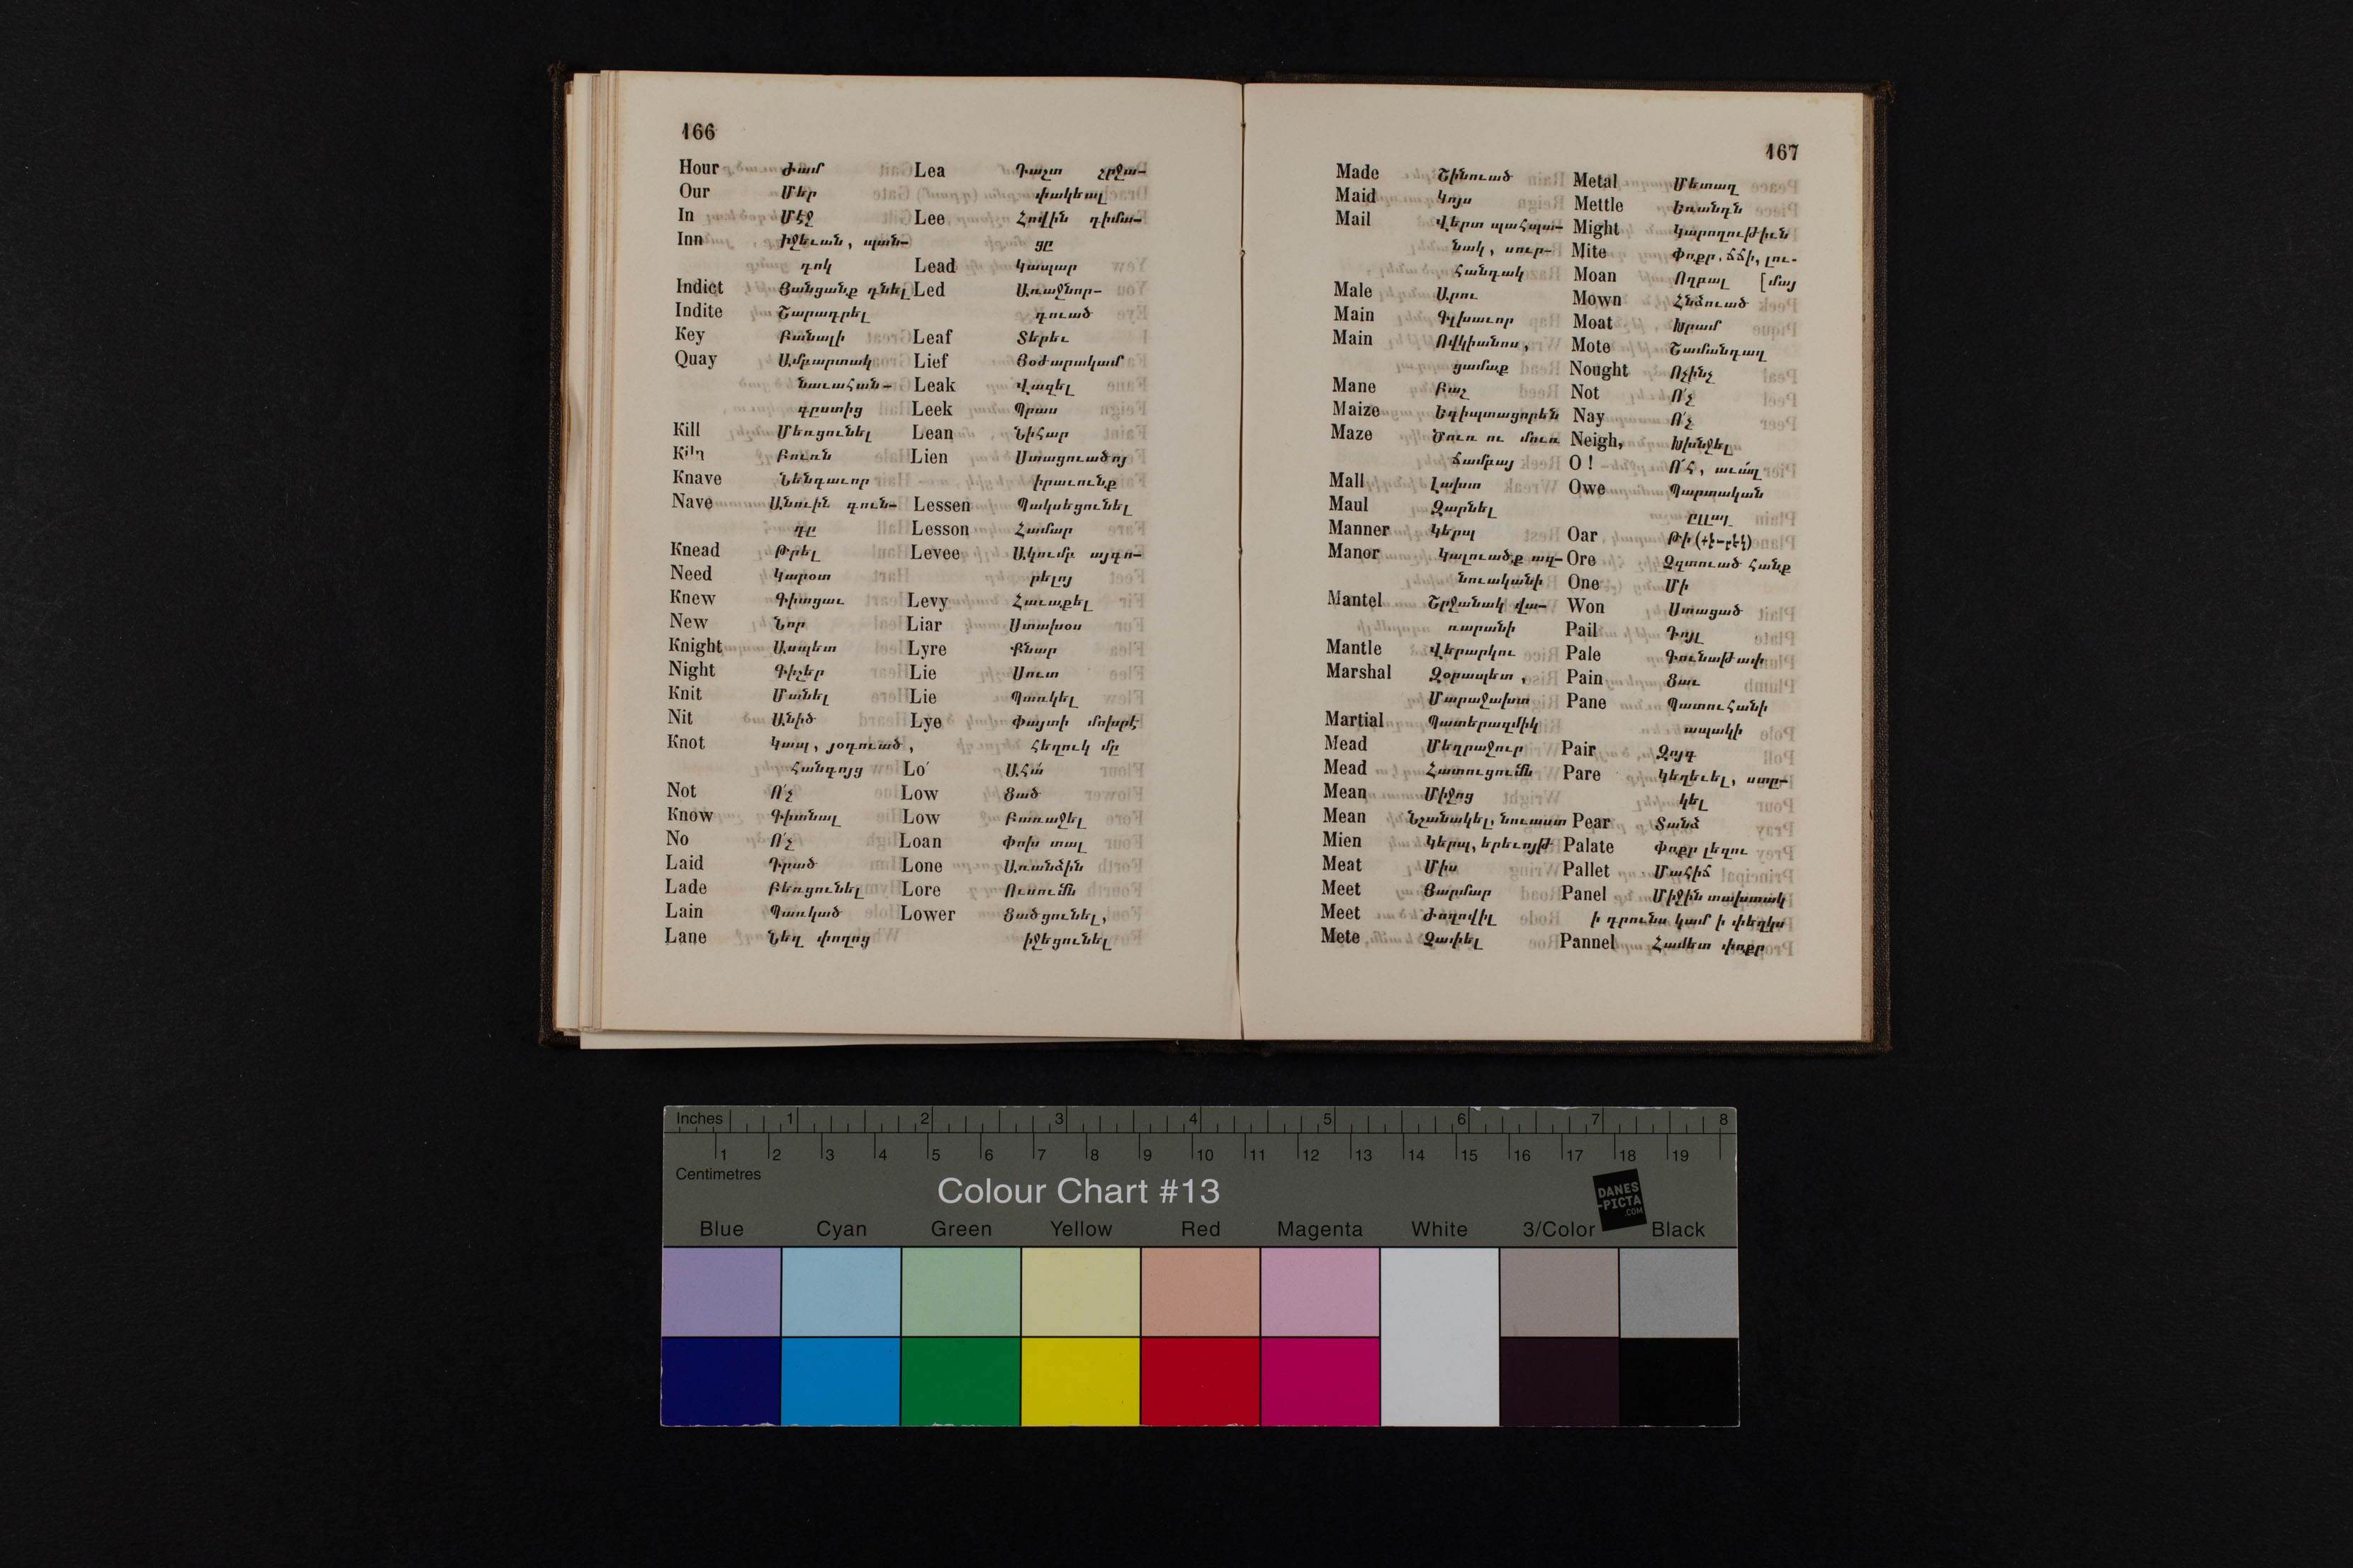 166
Hour Ժամ
Our Մեր
In Մէջ
Inn Իջեւան, պան-
դոկ
Indict Յանցանք դնել
Indite Շարադրել
Key Բանալի
Quay Ամբարտակ
նաւահան-
գըստից
Kill Մեռցունել
Kiln Բուռն
Knave Նենգաւոր
Nave Անուին գուն-
դը
Knead Թրել
Need Կարօտ
Knew Գիտցաւ
New Նոր
Knight Ասպետ
Night Գիշեր
Knit Մանել
Nit Անիծ
Knot Կապ, յօդուած,
հանգոյց
Not Ո՛չ
Know Գիտնալ
No Ո՛չ
Laid Դրած
Lade Բեռցունել
Lain Պառկած
Lane Նեղ փողոց
Lea Դաշտ շրջա-
փակեալ
Lee Հովին դիմա-
ցը
Lead Կապար
Led Առաջնոր-
դուած
Leaf Տերեւ
Lief Յօժարակամ
Leak Վազել
Leek Պրաս
Lean Նիհար
Lien Ստացուածոյ
իրաւունք
Lessen Պակսեցունել
Lesson Համար
Levee Ակումբ այգո-
րելոյ
Levy Հաւաքել
Liar Ստախօս
Lyre Քնար
Lie Սուտ
Lie Պառկել
Lye Փայտի մոխրէ
հեղուկ մը
Lo՛ Ահա՛
Low Ցած
Low Բառաչել
Loan Փոխ տալ
Lone Առանձին
Lore Ուսումն
Lower Ցածցունել,
իջեցունել
167
Made Շինուած
Maid Կոյս
Mail Վերտ պահպա-
նակ, սուր-
հանդակ
Male Արու
Main Գլխաւոր
Main Ովկիանոս,
ցամաք
Mane Բաշ
Maize Եգիպտացորեն
Maze Ծուռ ու մուռ
ճամբայ
Mall Լախտ
Maul Զարնել
Manner Կերպ
Manor Կալուածք ազ-
նուականի
Mantel Շրջանակ վա-
ռարանի
Mantle Վերարկու
Marshal Զօրապետ,
Մարաջախտ
Martial Պատերազմիկ
Mead Մեղրաջուր
Mead Հատուցումն
Mean Միջոց
Mean Նշանակել, նուաստ
Mien Կերպ, երեւոյթ
Meat Միս
Meet Յարմար
Meet Ժողովիլ
Mete Չափել
Metal Մետաղ
Mettle Եռանդն
Might Կարողութիւն
Mite Փոքր, ճճի, լու-
Moan Ողբալ [մայ
Mown Հնձուած
Moat Խրամ
Mote Շամանդաղ
Nought Ոչինչ
Not Ո՛չ
Nay Ո՛չ
Neigh, Խխնջել
O ! Ո՛հ, աւա՜ղ
Owe Պարտական
ըլլալ
Oar Թի
Ore Չզտուած հանք
One Մի
Won Ստացած
Pail Դոյլ
Pale Գունաթափ
Pain Ցաւ
Pane Պատուհանի
ապակի
Pair Զոյգ
Pare Կեղեւել, ստը-
կել
Pear Տանձ
Palate Փոքր լեզու
Pallet Մահիճ
Panel Միջին տախտակ
ի դրունս կամ ի փեղկս
Pannel Համետ փոքր
Inches 1 2 3 4 5 6 7 8
1 2 3 4 5 6 7 8 9 10 11 12 13 14 15 16 17 18 19
Centimetres
Colour Chart #13
DANES
-PICTA
.COM
Blue Cyan Green Yellow Red Magenta White 3/Color Black